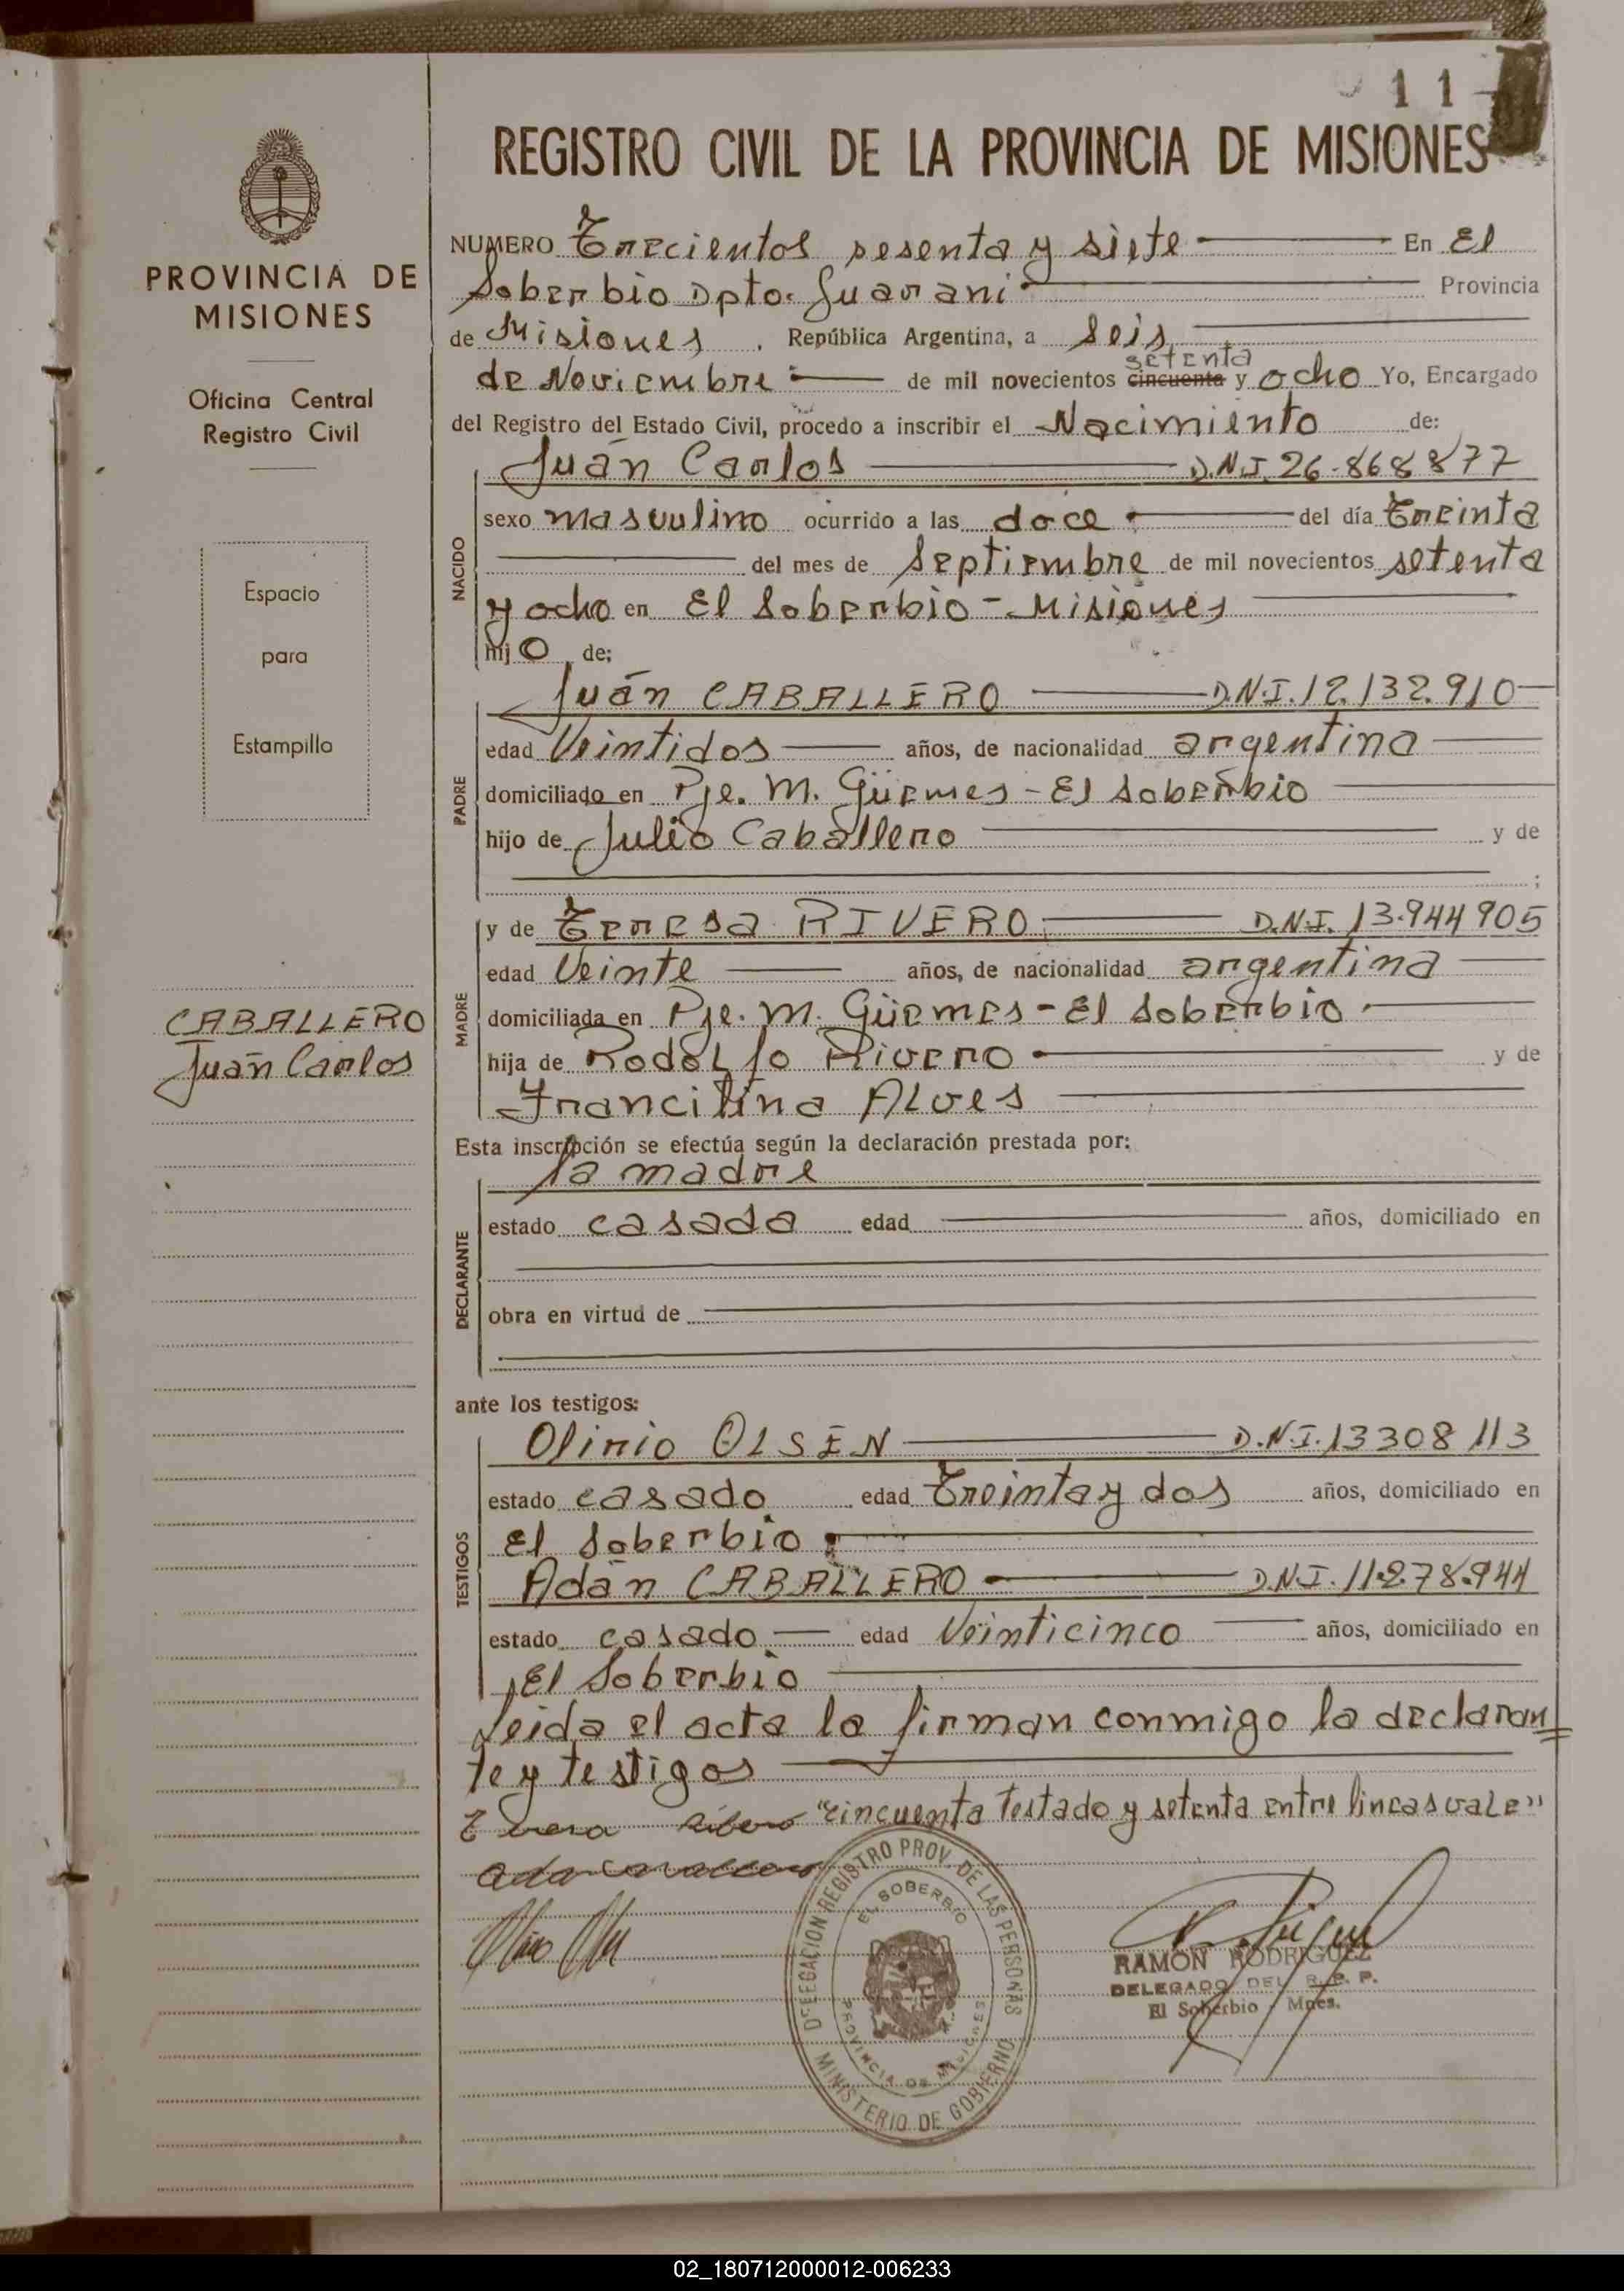 11
REGISTRO CIVIL DE LA PROVINCIA DE MISIONES
PROVINCIA DE
MISIONES
Oficina Central
Registro Civil
Espacio
para
Estampilla
CABALLERO
Juán Carlos
NUMERO Trecientos sesenta y siete En El
Soberbio Dpto. Guarani Provincia
de Misiones, República Argentina, a seis
setenta
de Noviembre de mil novecientos cincuenta y ocho Yo, Encargado
del Registro del Estado Civil, procedo a inscribir el Nacimiento de:
Juán Carlos D.N.I. 26.868877
sexo masculino ocurrido a las doce del día treinta
del mes de Septiembre de mil novecientos setenta
y ocho en El Soberbio - Misiones
NACIDO
hijo de;
Juán CABALLERO D.N.I. 12.132.910
edad Veintidos años, de nacionalidad argentina
domiciliado en Pje. M. Güemes - El Soberbio
PADRE
hijo de Julio Caballero y de
;
y de Teresa RIVERO D.N.I. 13.944905
edad Veinte años, de nacionalidad argentina
domiciliada en Pje. M. Güemes - El Soberbio
MADRE
hija de Rodolfo Rivero y de
Francilina Alves
Esta inscripción se efectúa según la declaración prestada por:
la madre
estado casada edad años, domiciliado en
DECLARANTE
obra en virtud de
ante los testigos:
Olinio OLSEN D.N.I. 13308113
estado casado edad Treinta y dos años, domiciliado en
El Soberbio
TESTIGOS
Adán CABALLERO D.N.I. 11.278.944
estado casado edad Veinticinco años, domiciliado en
El Soberbio
Leida el acta la firman conmigo la declaran=
te y testigos
"cincuenta testado y setenta entre lineas vale"
DELEGACION REGISTRO PROV. DE LAS PERSONAS
EL SOBERBIO
PROVINCIA DE MISIONES
MINISTERIO DE GOBIERNO
RAMON RODRIGUEZ
DELEGADO DEL R. P. P.
El Soberbio - Mnes.
02_180712000012-006233